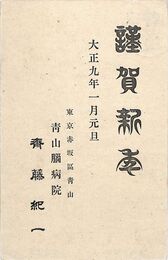 謹賀新年
大正九年一月元旦
東京赤坂區青山
青山腦病院
齋藤紀一